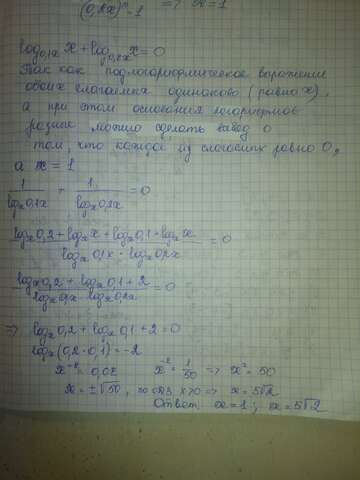 (0,2x)⁰=1 => x=1
log₀,₁ₓ x + log₀,₂ₓ x = 0
Так как подлогарифмическое выражение
обоих слагаемых одинаково (равно x),
а при этом основания логарифмов
разные можно сделать вывод о
том, что каждое из слагаемых равно 0,
а x = 1
1/logₓ0,1x + 1/logₓ0,2x = 0
(logₓ0,2 + logₓx + logₓ0,1 + logₓx)/(logₓ0,1x · logₓ0,2x) = 0
(logₓ0,2 + logₓ0,1 + 2)/(logₓ0,1x · logₓ0,2x) = 0
=> logₓ0,2 + logₓ0,1 + 2 = 0
logₓ(0,2 · 0,1) = -2
x⁻² = 0,02 x⁻² = 1/50 => x² = 50
x = ±√50, по ОДЗ x>0 => x = 5√2
Ответ: x = 1; x = 5√2